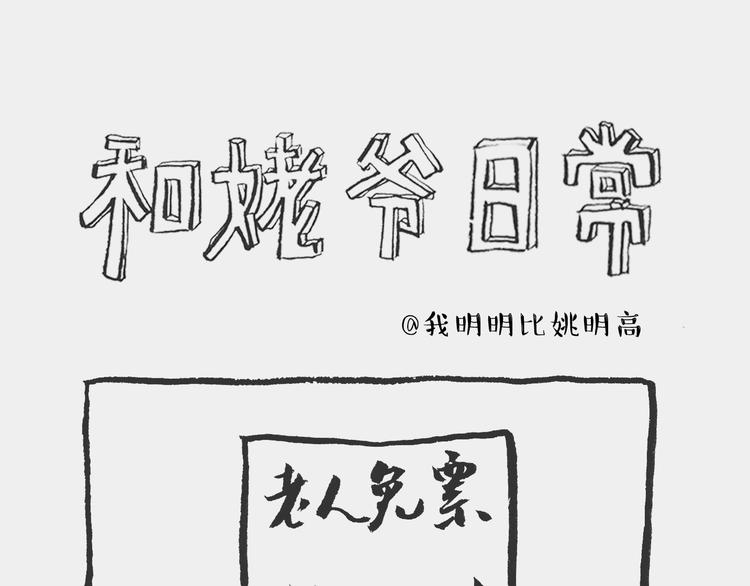 和姥爷日常
@我明明比姚明高
老人免票